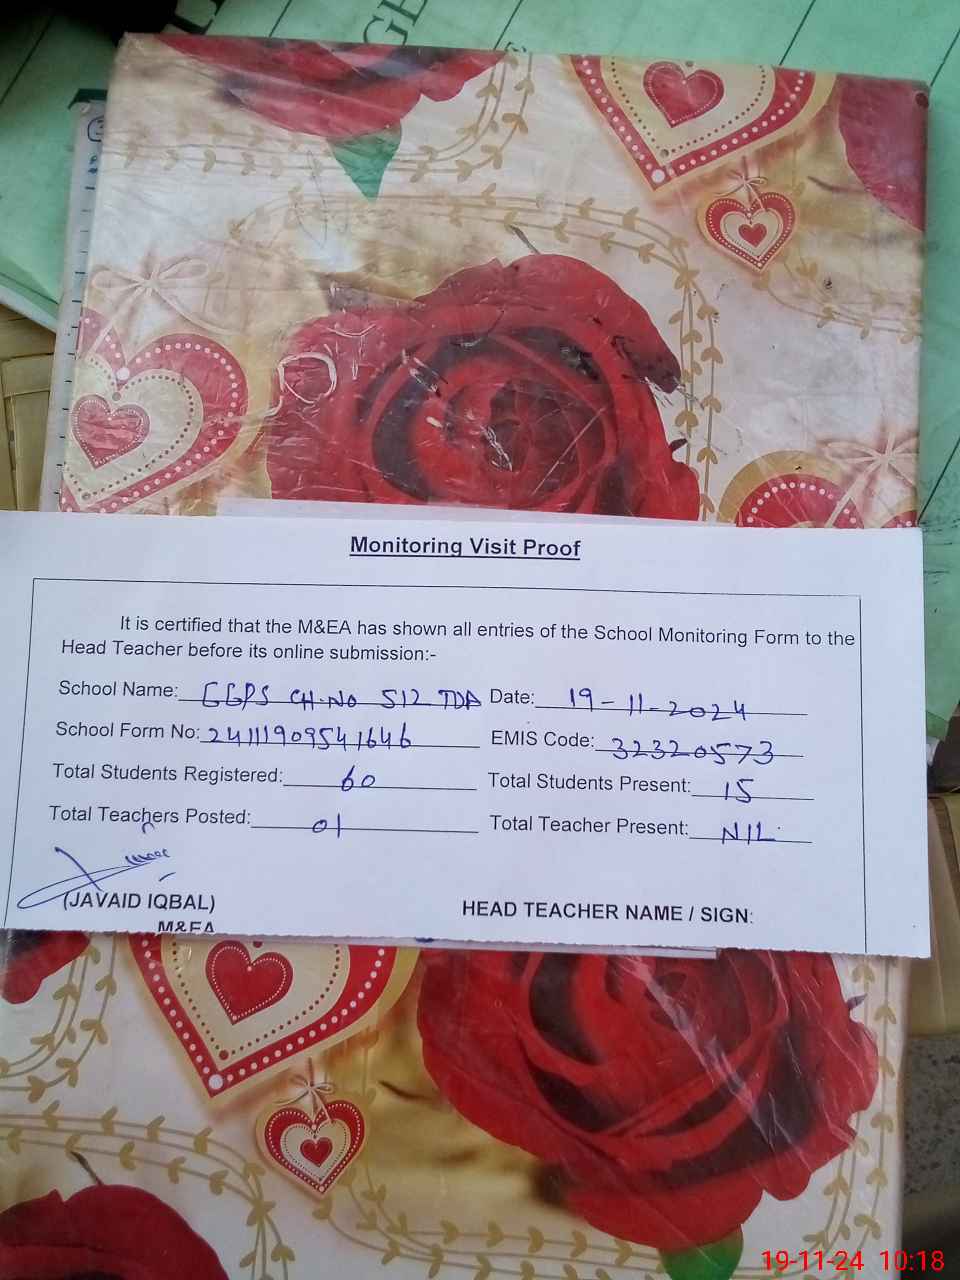 Monitoring Visit Proof
It is certified that the M&EA has shown all entries of the School Monitoring Form to the
Head Teacher before its online submission:-
School Name: GGPS CH.NO 512 TDA Date: 19-11-2024
School Form No: 24111909541646 EMIS Code: 32320573
Total Students Registered: 60 Total Students Present: 15
Total Teachers Posted: 01 Total Teacher Present: NIL
(JAVAID IQBAL) HEAD TEACHER NAME / SIGN:
M&EA
19-11-24 10:18